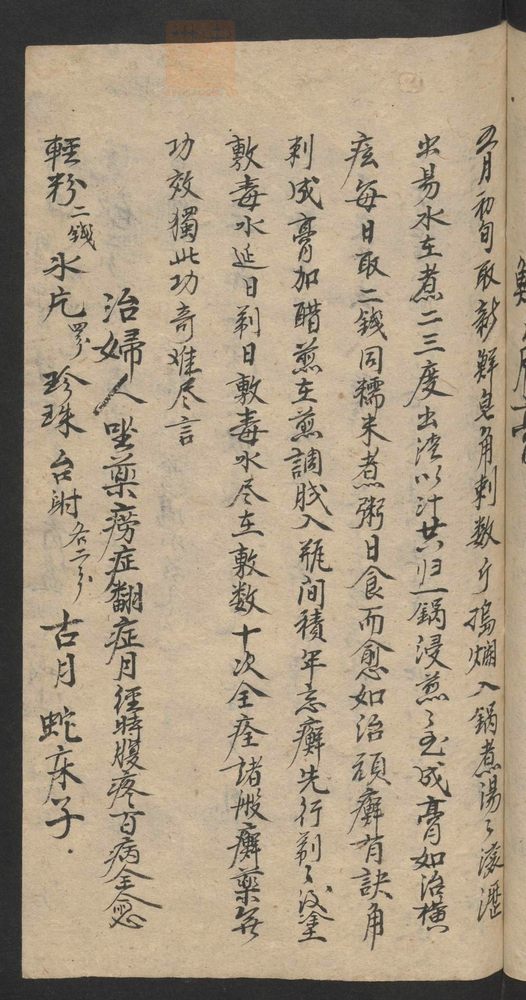 五月初旬取新鮮皂角剌数斤搗爛入鍋煮湯々滚瀝
出易水在煮二三度出渣以汁共归一鍋浸煎々至成膏如治横
痃每日取二錢同糯米煮粥日食而愈如治頑癬有訣角
刺成膏加醋煎在煎調膩入瓶间積年恶癬先行剃々後塗
敷毒水延日剃日敷毒水尽在敷数十次全痊諸般癬藥無
功效獨此功奇难尽言
治婦人坐藥痨症翻症月經時腹疼百病全愈
輕粉二錢 氷片四分 珍珠 台附各二分 古月 蛇床子.